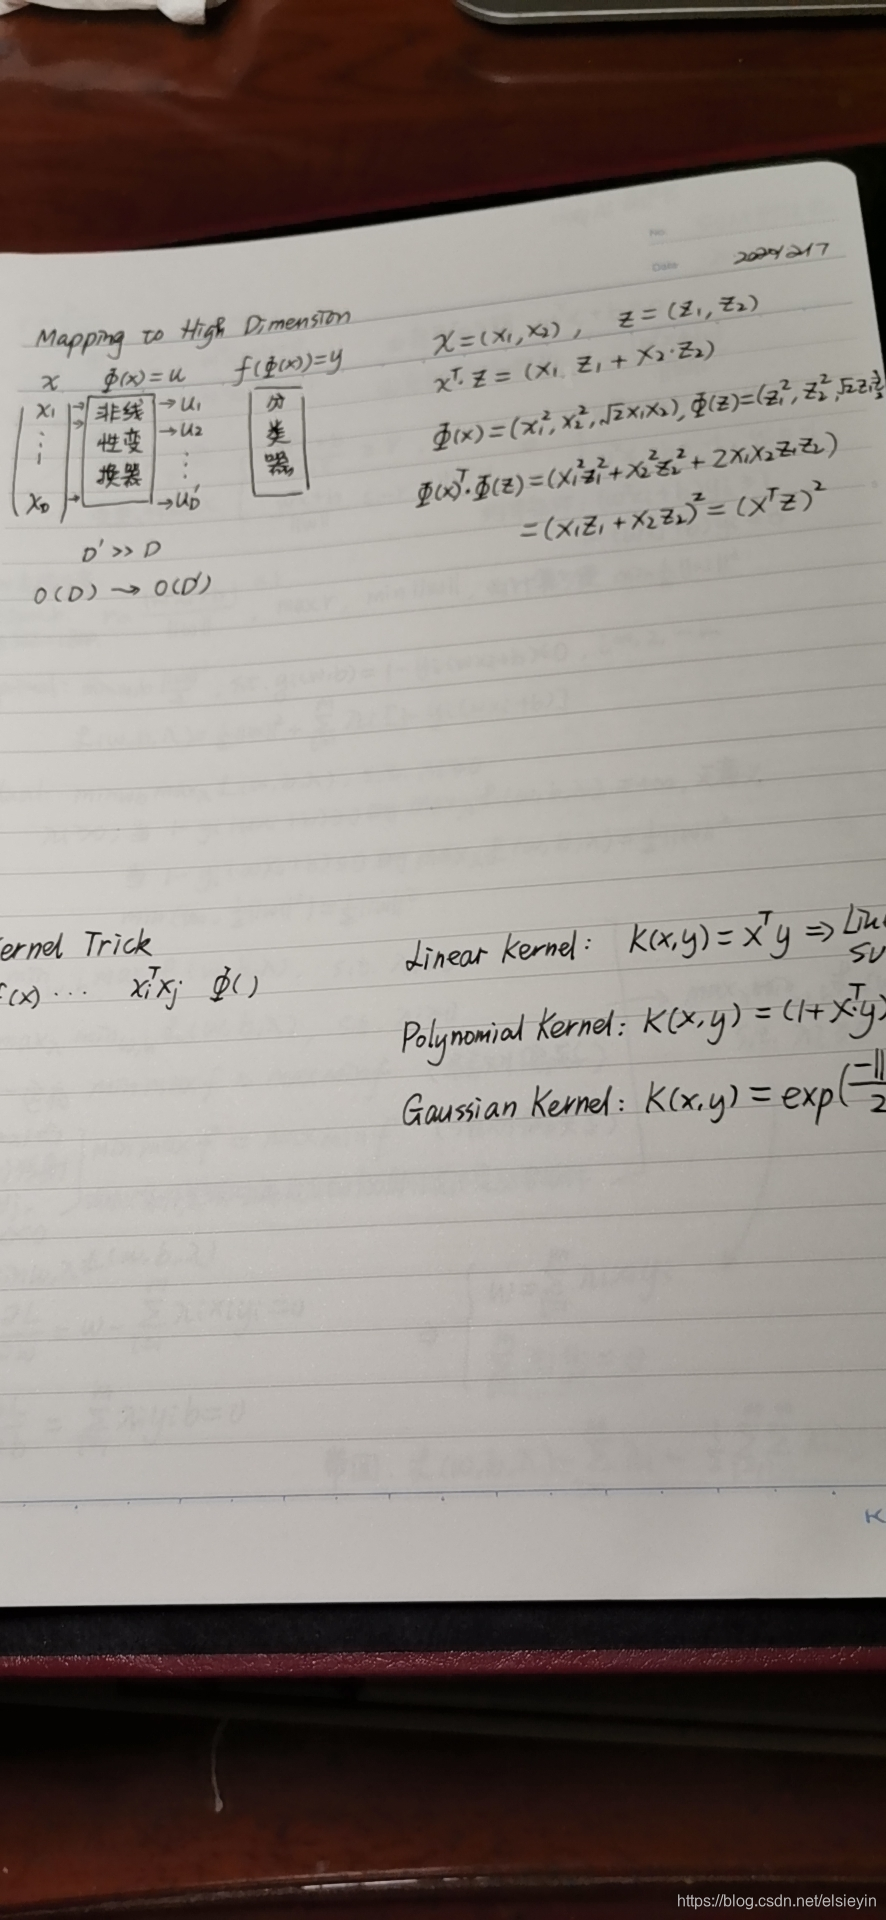 No.
Date
Mapping to High Dimension
x Φ(x)=u f(Φ(x))=y
x₁ 非线 →u₁ 分
⋮ 性变 →u₂ 类
换器 ⋮ 器
x_D →u_D'
D' >> D
O(D) → O(D')
x=(x₁,x₂), z=(z₁,z₂)
xᵀ·z=(x₁ z₁+x₂·z₂)
Φ(x)=(x₁²,x₂²,√2x₁x₂), Φ(z)=(z₁²,z₂²,√2z₁z₂
Φ(x)ᵀ·Φ(z)=(x₁²z₁²+x₂²z₂²+2x₁x₂z₁z₂)
=(x₁z₁+x₂z₂)²=(xᵀz)²
ernel Trick
f(x) ··· xᵢᵀxⱼ Φ()
Linear Kernel: K(x,y)=xᵀy ⇒
Polynomial Kernel: K(x,y)=(1+xᵀ·y)
Gaussian Kernel: K(x,y)=exp(-||
2
K
https://blog.csdn.net/elsieyin